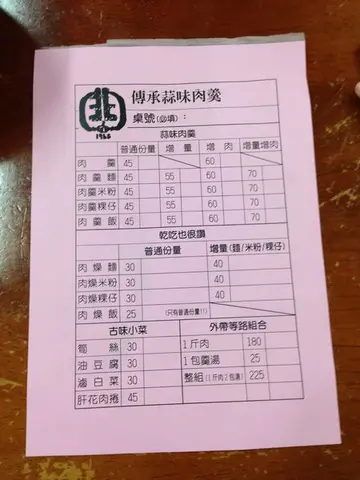 傳承蒜味肉羹
1968
桌號(必填)：
蒜味肉羹
普通份量 增量 增肉 增量增肉
肉羹 45 60
肉羹麵 45 55 60 70
肉羹米粉 45 55 60 70
肉羹粿仔 45 55 60 70
肉羹飯 45 55 60 70
乾吃也很讚
普通份量 增量(麵/米粉/粿仔)
肉燥麵 30 40
肉燥米粉 30 40
肉燥粿仔 30 40
肉燥飯 25 (只有普通份量!!)
古味小菜 外帶等路組合
筍絲 30 1斤肉 180
油豆腐 30 1包羹湯 25
滷白菜 30 整組(1斤肉2包湯) 225
肝花肉捲 45